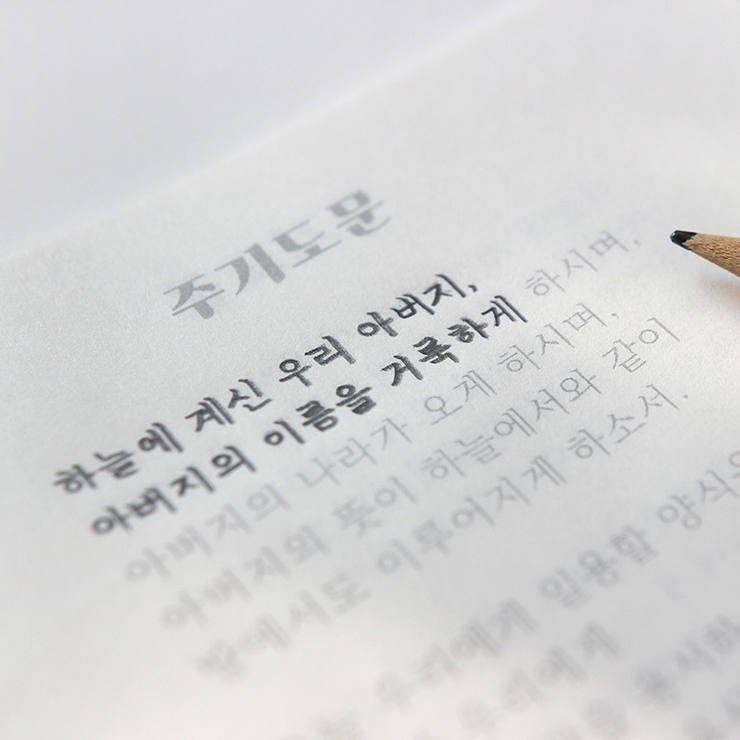 주기도문
하늘에 계신 우리 아버지,
아버지의 이름을 거룩하게 하시며,
아버지의 나라가 오게 하시며,
아버지의 뜻이 하늘에서와 같이
땅에서도 이루어지게 하소서.
우리에게 일용할 양식을
우리에게
용서하